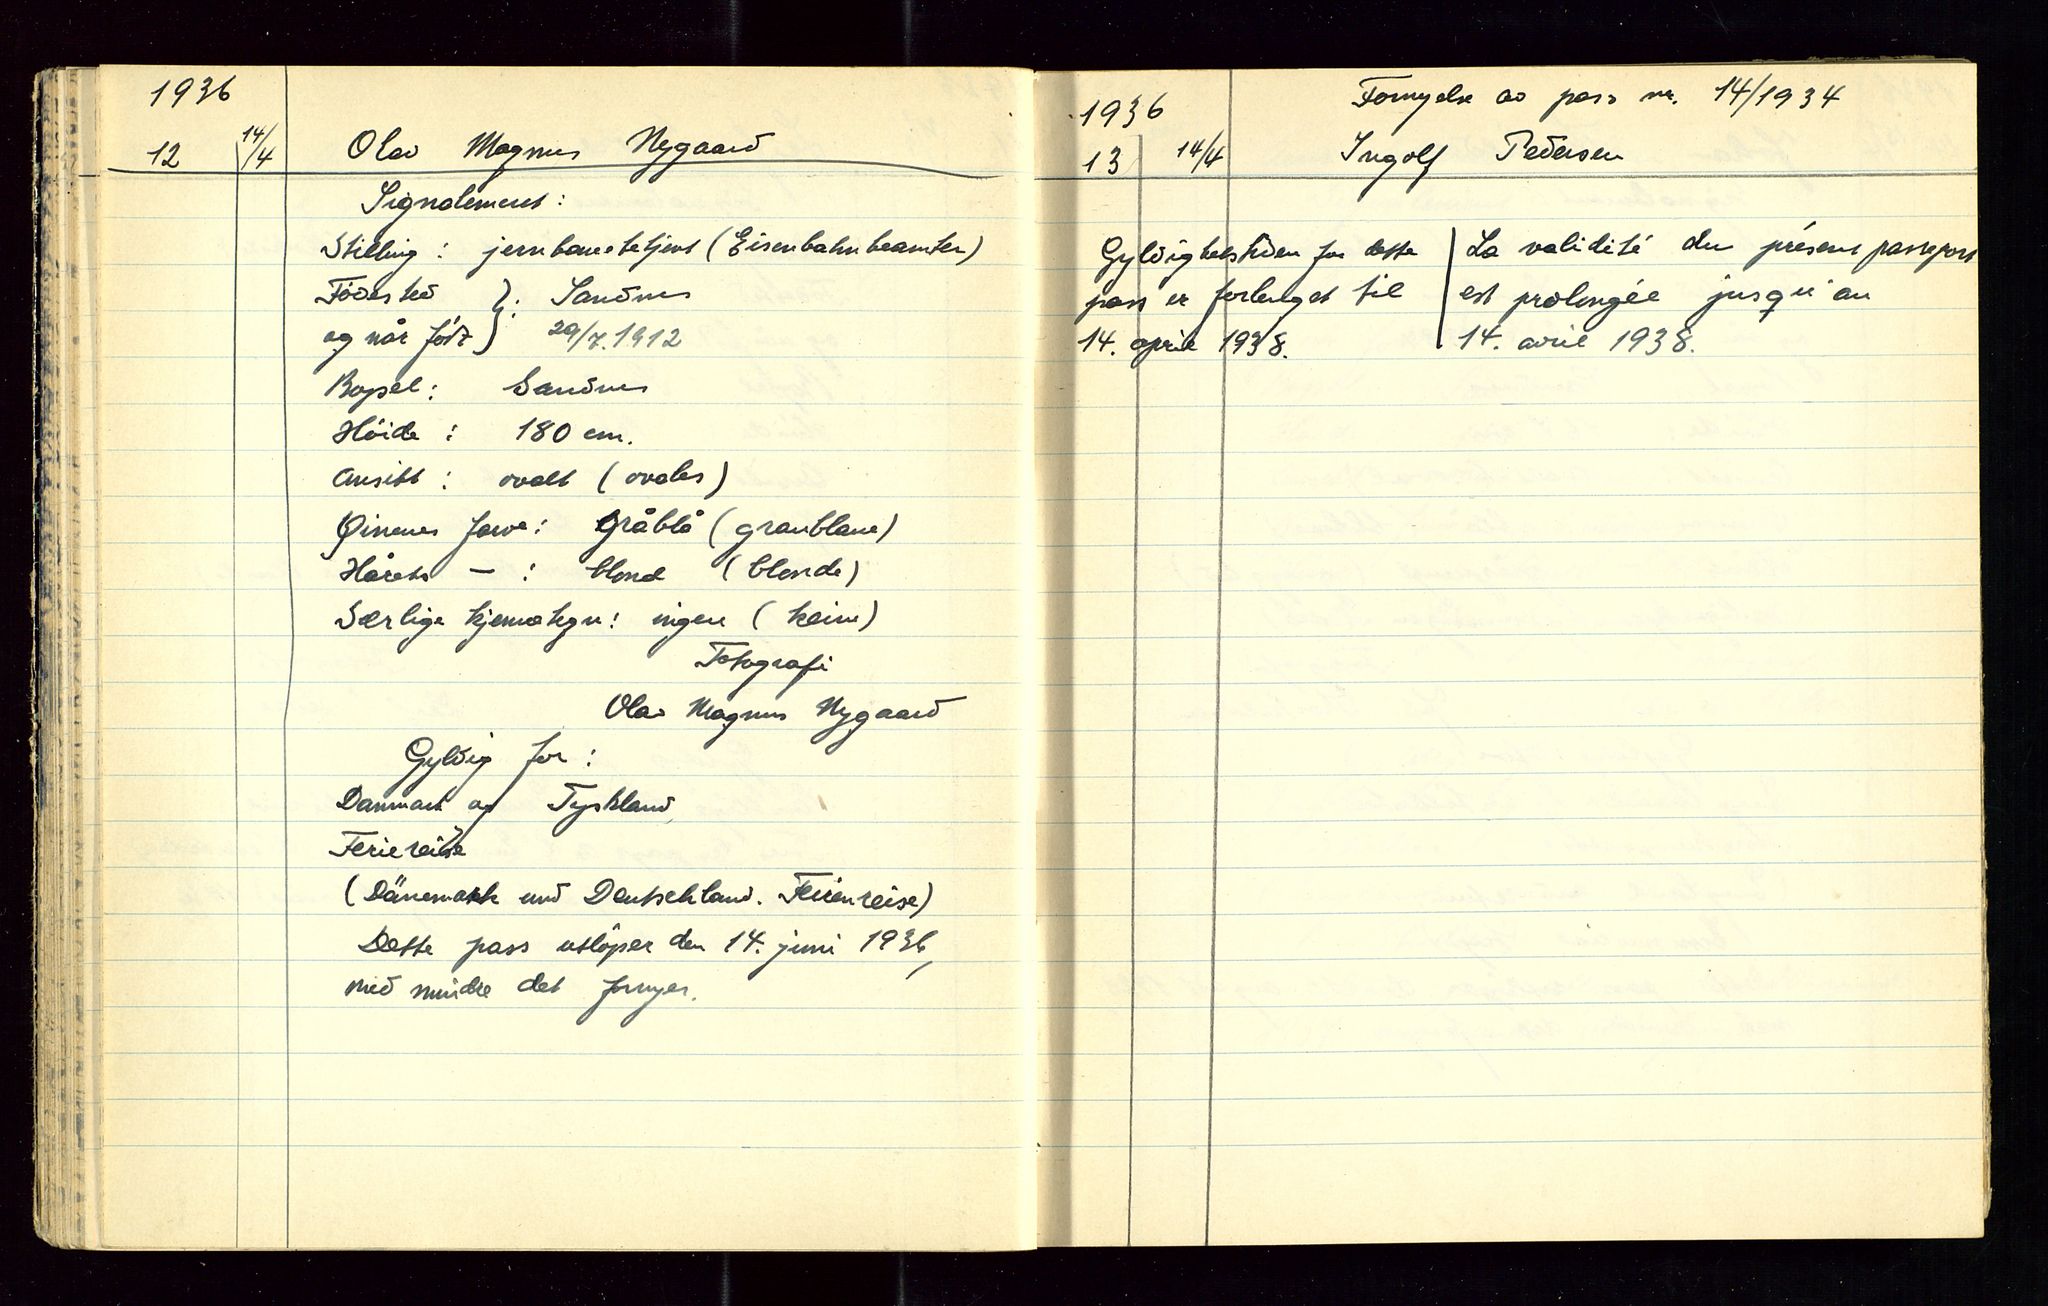 1936
12 14/4 Olav Magnus Nygaard
Signalement:
Stilling: jernbanebetjent (Eisenbahnbeamter)
Fødested } : Sandnes
og når født 29/7. 1912
Bopæl: Sandnes
Høide: 180 cm.
Ansikt: ovalt (ovales)
Øinenes farve: Gråblå (graublaue)
Hårets — : blond (blonde)
Særlige kjennetegn: ingen (keine)
Fotografi
Olav Magnus Nygaard
Gyldig for:
Danmark og Tyskland,
Feriereise
(Dänemark und Deutschland. Ferienreise)
Dette pass utløper den 14. juni 1936,
med mindre det fornyes.
1936 Fornyelse av pass nr. 14/1934
13 14/4 Ingolf Pedersen
Gyldighetstiden for dette
pass er forlenget til
14. april 1938.
La validité du présent passeport
est prolongée jusqu'au
14. avril 1938.